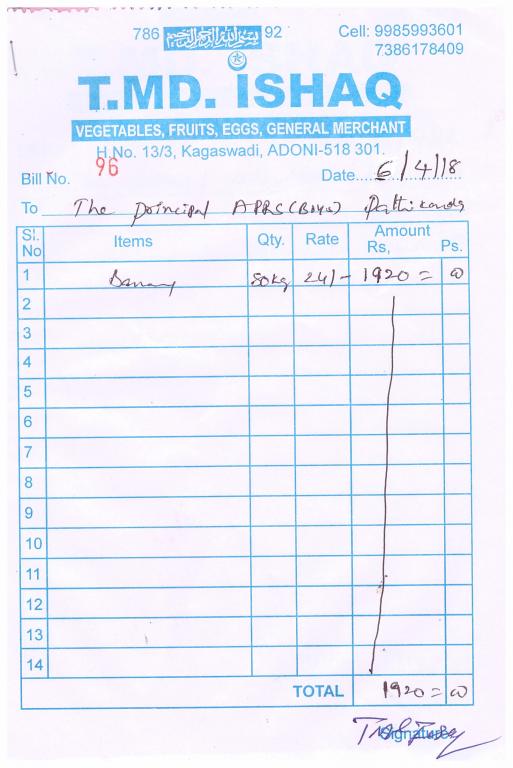 786 بسم الله الرحمن الرحيم 92
Cell: 9985993601
7386178409
T.MD. ISHAQ
VEGETABLES, FRUITS, EGGS, GENERAL MERCHANT
H.No. 13/3, Kagaswadi, ADONI-518 301.
Bill No. 96 Date 6/4/18
To The Principal APRS (Boys) Pattikonda
Sl. No Items Qty. Rate Amount Rs, Ps.
1 Banana 80kg 24/- 1920 = 00
2
3
4
5
6
7
8
9
10
11
12
13
14
TOTAL 1920 = 00
Signature